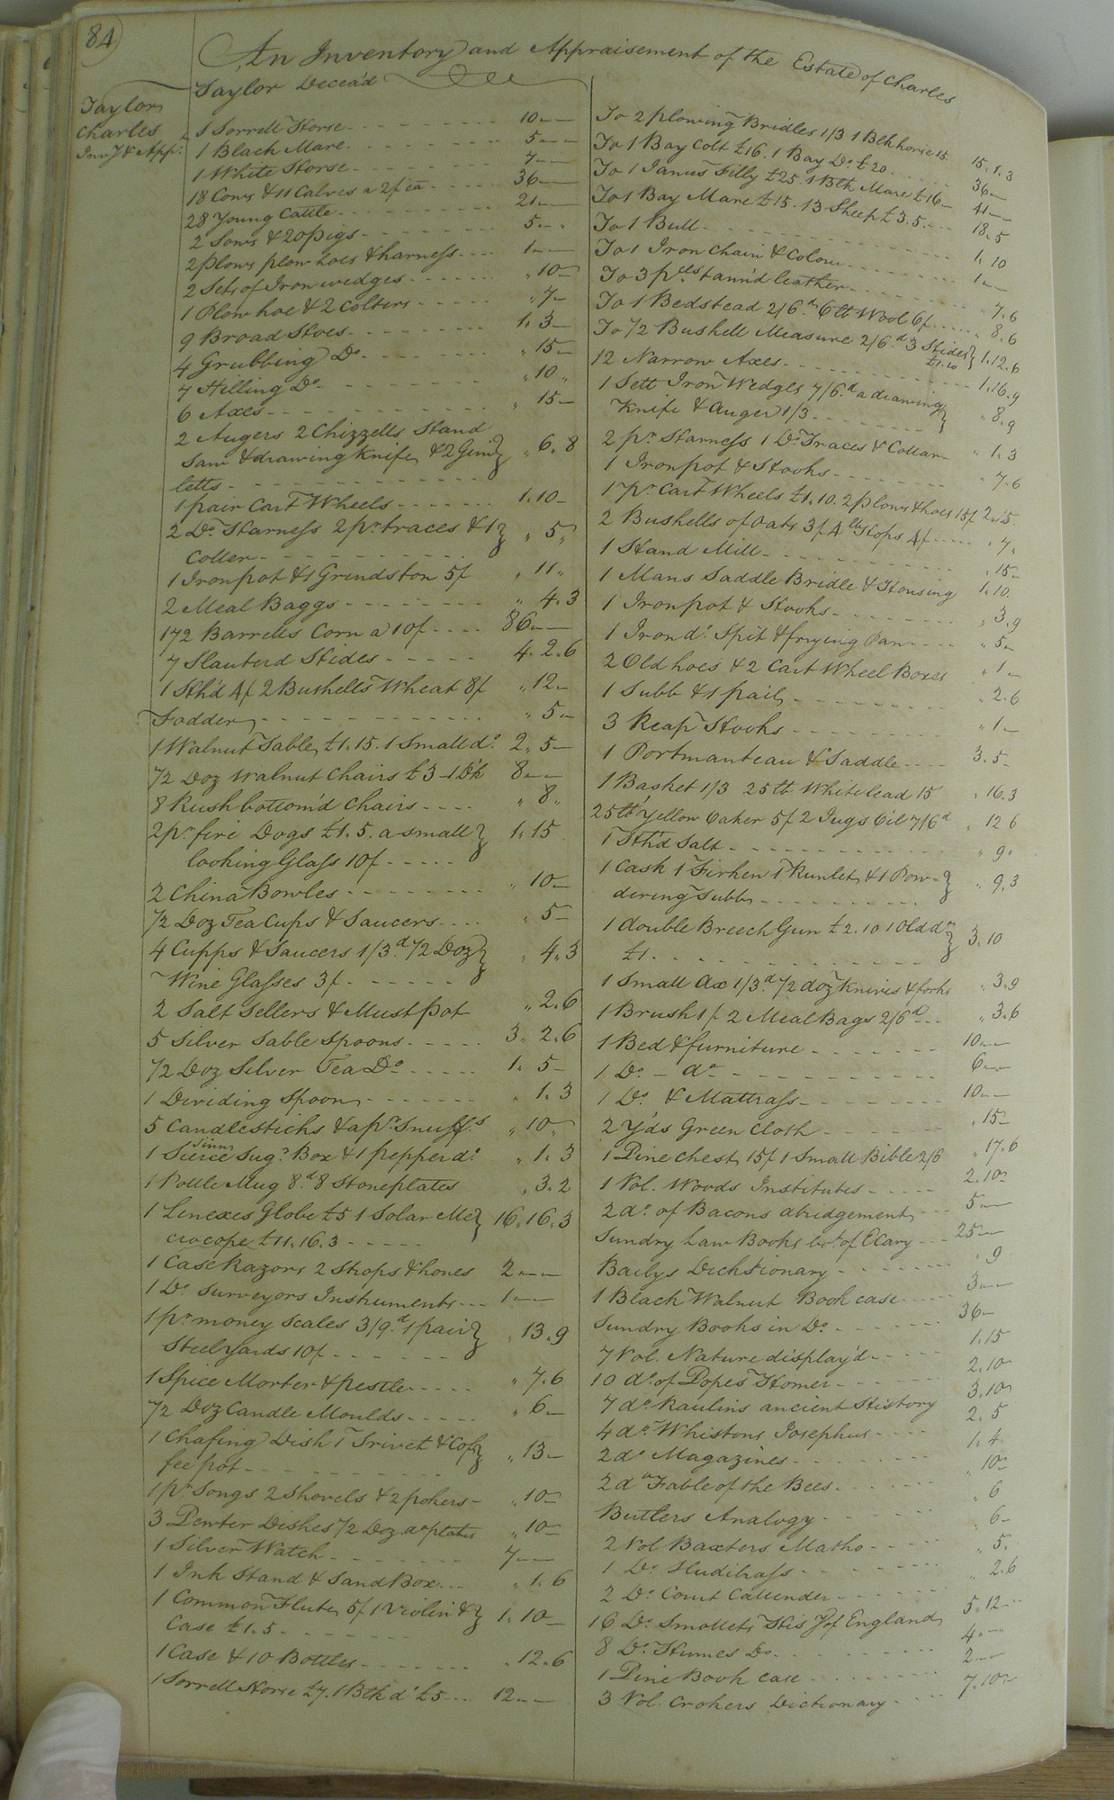 84
An Inventory and Appraisement of the Estate of Charles
Taylor Deceas'd
Taylor
Charles
Inv.y & App.t
1 Sorrell Horse 10 — —
1 Black Mare 5 — —
1 White Horse 7 — —
18 Cows & 11 Calves a 2/ ea 36 —
28 Young Cattle 21 —
2 Sows & 20 pigs 5 —
2 plows plow hoes & harness 1 —
2 Sets of Iron wedges " 10 —
1 Plow hoe & 2 Colters " 7 —
9 Broad Hoes 1. 3 —
4 Grubbing Do. " 15 —
7 Hilling Do. " 10 "
6 Axes " 15 —
2 Augers 2 Chizzells Hand
Saw & drawing Knife & 2 Gim
letts " 6. 8
1 pair Cart Wheels 1. 10 —
2 Do. Harness 2 pr. traces & 1
Coller " 5 "
1 Iron pot & 1 Grindston 5/ " 11 "
2 Meal Baggs " 4. 3
172 Barrells Corn a 10/ 86 —
7 Slauterd Hides 4. 2. 6
1 Hh'd 4/ 2 Bushells Wheat 8/ " 12 —
Fodder " 5 —
1 Walnut Table £1. 15. 1 Small do. 2. 5 —
1/2 Doz Walnut Chairs £3 8 — —
8 Rush bottom'd Chairs " 8 "
2 pr. fire Dogs £1. 5. a small
looking Glass 10/ 1. 15
2 China Bowles " 10 —
1/2 Doz Tea Cups & Saucers " 5 —
4 Cupps & Saucers 1/3 d 1/2 Doz
Wine Glasses 3/ " 4. 3
2 Salt Sellers & Must pot " 2. 6
5 Silver Table Spoons 3. 2. 6
1/2 Doz Silver Tea Do. 1. 5 —
1 Dividing Spoon " 1. 3
5 Candlesticks & a pr. Snuff.s " 10 "
1 Tinn Sug.r Box & 1 pepper do. " 1. 3
1 Pottle Mug 8.d 8 Stone plates " 3. 2
1 Lenexes Globe £5 1 Solar Me
crocope £11. 16. 3 16. 16. 3
1 Case Razors 2 Strops & hones 2 — —
1 Do. Surveyors Instruments 1 — —
1 pr. money Scales 3/9.d 1 pair
Steelyards 10/ " 13. 9
1 Spice Morter & pestle " 7. 6
1/2 Doz Candle Moulds " 6 —
1 Chafing Dish 1 Trivet & Cof
fee pot " 13 —
1 pr. Tongs 2 Shovels & 2 pokers " 10 —
3 Pewter Dishes 1/2 Doz do. plates " 10 —
1 Silver Watch 7 — —
1 Ink Stand & Sand Box " 1. 6
1 Common Flute 5/ 1 Violin &
Case £1. 5 1. 10 —
1 Case & 10 Bottles " 12. 6
1 Sorrell Horse £7. 1 Blk d.o £5 12 — —
To 2 plowing Bridles 1/3 1 Blk horse 15 15. 1. 3
To 1 Bay Colt £16. 1 Bay Do. £20 36 —
To 1 Janus Filly £25. 1 Blk Mare £16 41 — —
To 1 Bay Mare £15. 13 Sheep £3. 5 18. 5
To 1 Bull 1. 10
To 1 Iron Chain & 1 —
To 3 p.ces tann'd leather " 7. 6
To 1 Bedstead 2/6.d 6 lb Wool 6/ " 8. 6
To 1/2 Bushell Measure 2/6.d 3 Hides
£1. 10 1. 12. 6
12 Narrow Axes 1. 16. 9
1 Sett Iron Wedges 7/6.d a drawing
Knife & Auger 1/3 " 8. 9
2 pr. Harness 1 Do. Traces & Collar " 1. 3
1 Iron pot & Hooks " 7. 6
1 pr. Cart Wheels £1. 10. 2 plows & hoes 15/ 2. 5
2 Bushells of Oats 3/ 4 lb Hops 4/ " 7 "
1 Hand Mill " 15 —
1 Mans Saddle Bridle & Housing 1. 10.
1 Iron pot & Hooks " 3. 9
1 Iron do. Spit & frying Pan " 5 —
2 Old hoes & 2 Cart Wheel Boxes " 1 —
1 Tubb & 1 pail " 2. 6
3 Reap Hooks " 1 —
1 Portmanteau & Saddle 3. 5 —
1 Basket 1/3 25 lb White lead 15 " 16. 3
25 lb Yellow Oaker 5/ 2 Jugs Oil 7/6.d " 12 6
1 Hh'd Salt " 9 "
1 Cask 1 Firken 1 Runlet & 1 Pow
dering Tubb " 9. 3
1 double Breech Gun £2. 10 1 Old do.
£1. 3. 10
1 Small Ax 1/3.d 1/2 doz Knives & forks " 3. 9
1 Brush 1/ 2 Meal Bags 2/6.d " 3. 6
1 Bed & furniture 10 — —
1 Do. — do. 6 — —
1 Do. & Mattrass 10 — —
2 Y'ds Green Cloth " 15 —
1 Pine Chest 15/ 1 Small Bible 2/6 " 17. 6
1 Vol. Woods Institutes 2. 10 —
2 do. of Bacons abridgement 5 — —
Sundry Law Books bo.t of ECary 25 —
Bailys Dicktionary " 9
1 Black Walnut Book case 3 — —
Sundry Books in Do. 36 —
7 Vol. Nature display'd 1. 15
10 do. of Popes Homer 2. 10 —
7 do. Raulins ancient History 3. 10 —
4 do. Whistons Josephus 2. 5
2 do. Magazines 1. 4
2 do. Fable of the Bees " 10 —
Butlers Analogy " 6
2 Vol Baxters Matho " 6 —
1 Do. Hudibrass " 5.
2 Do. Court Callender " 2. 6
16 Do. Smolletts Hist.y of England 5. 12 —
8 Do. Humes Do. 4 — —
1 Pine Book case 2 — —
3 Vol. Crokers Dictionary 7. 10 —